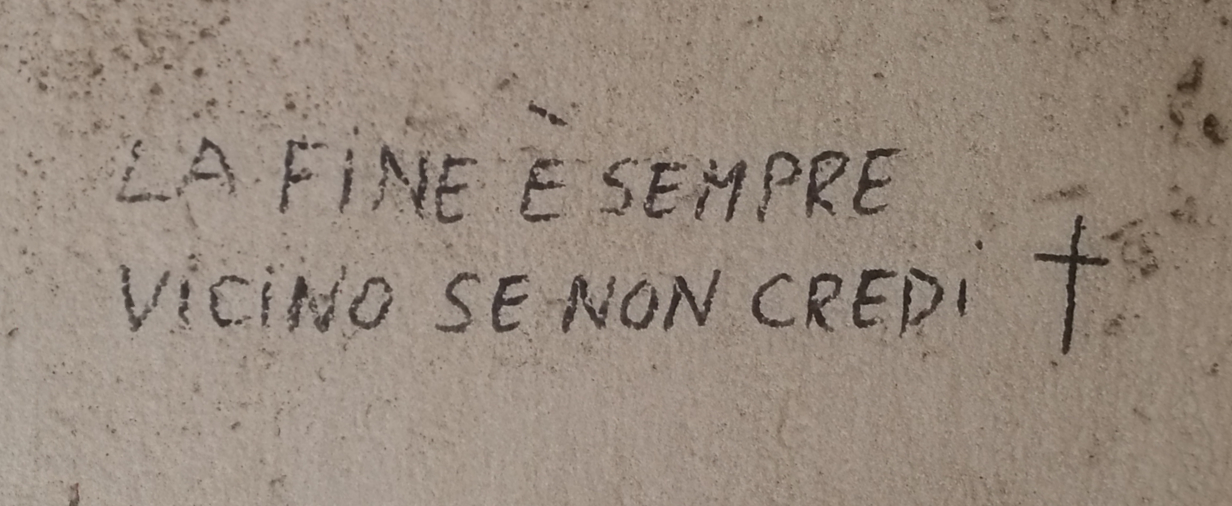 LA FINE È SEMPRE
VICINO SE NON CREDI